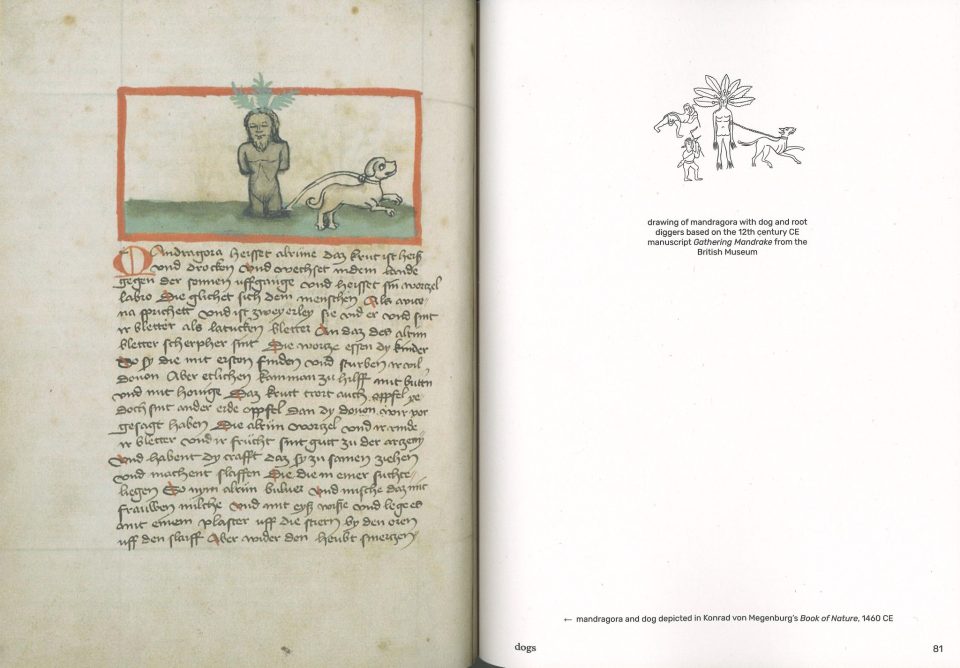 Mandragora heisset alrune daz krut ist heiß
vnd drocken vnd wechset in dem lande
gegen der sonnen uffgange vnd heisset sin wortzel
labro Die glichet sich dem menschen Als auice-
na sprichett vnd ist zweyerley sie vnd er vnd sint
ir bletter als latucken bletter An daz des alrun
bletter scherpher sint Die wortze essen dy kinder
So sy die mit ersten finden vnd sturben ir vil
douon Aber etlichen kamman zu hilff mit buttn
vnd mit honige Daz krutt trort auch oppfel
doch sint ander erde oppffel dan dy douon wir vor
gesagt haben Die alrun wortzel vnd ir rinde
ir bletter vnd ir frücht sint gutt zu der artzeny
vnd habent dy crafft daz sy zu samen ziehen
vnd machent slaffen Die die in einer suchte
liegen So nym alrun buluer vnd mische daz mit
frauwen milche vnd mit eyß wisse vnd lege es
mit einem plaster uff die stiern by den oren
uff den slaiff Aber wider den heubt smertzen
drawing of mandragora with dog and root
diggers based on the 12th century CE
manuscript Gathering Mandrake from the
British Museum
← mandragora and dog depicted in Konrad von Megenburg's Book of Nature, 1460 CE
dogs
81